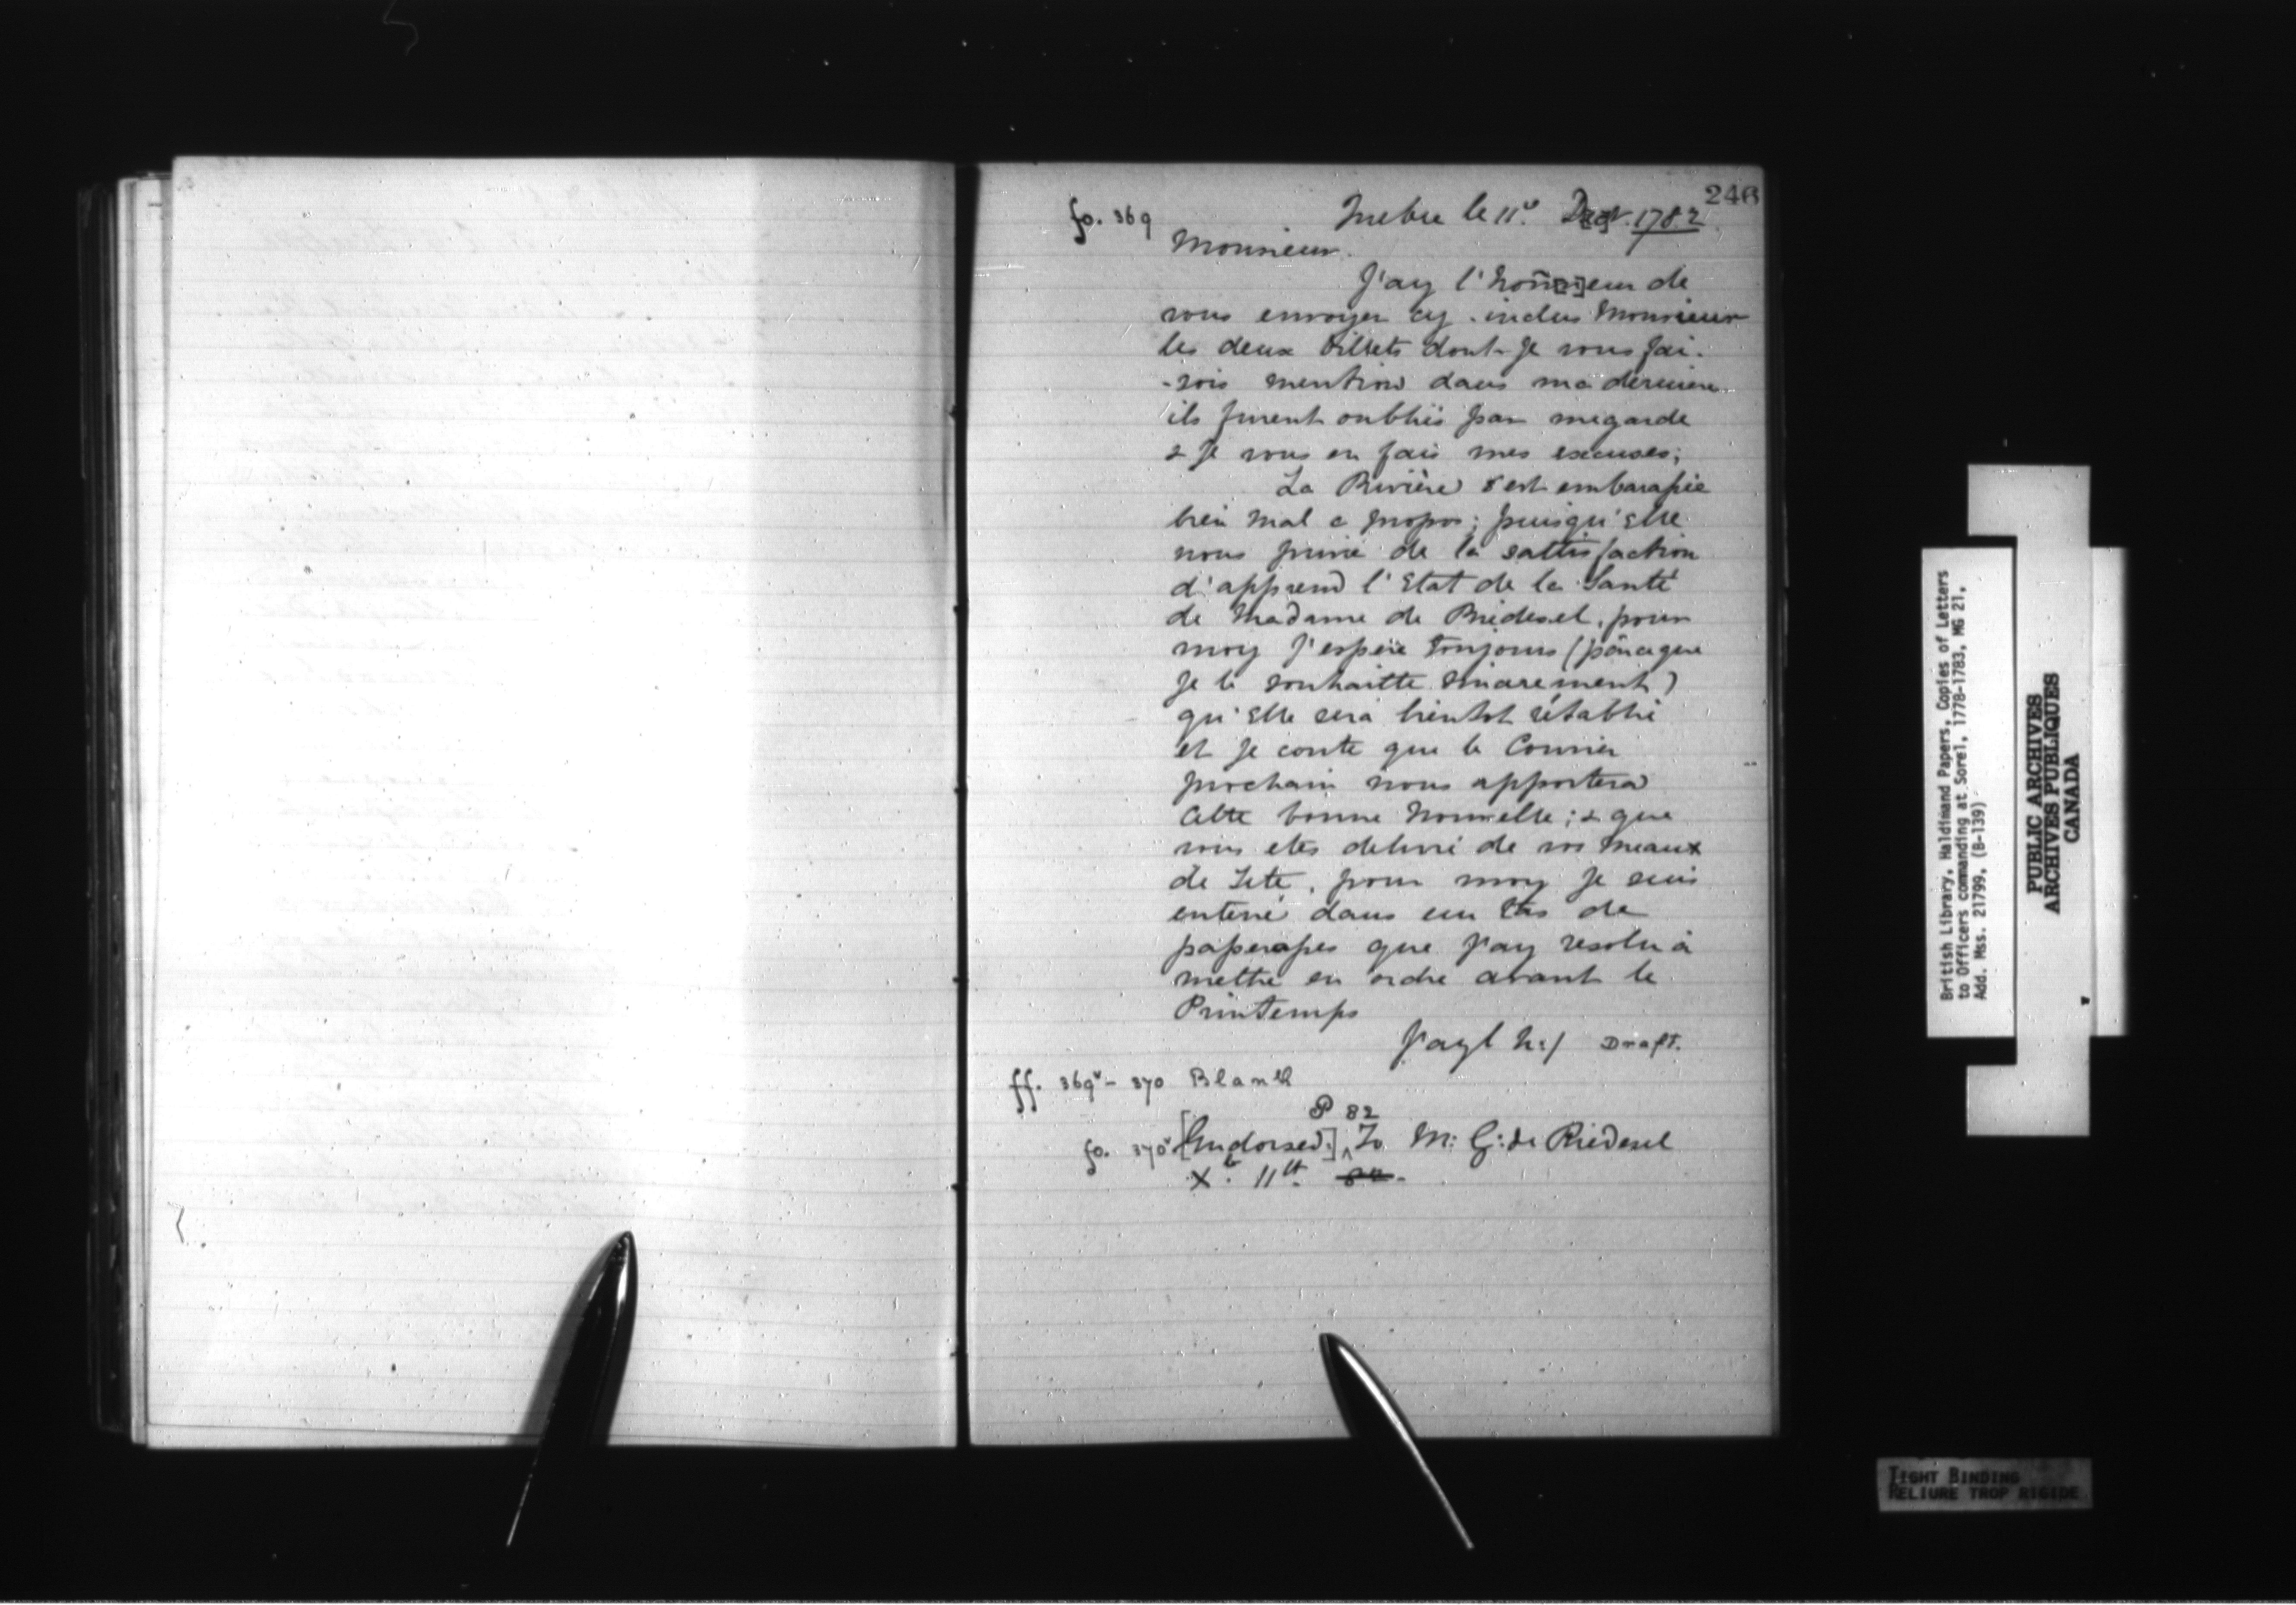 246
fo. 369
Quebec le 11e. Decr. 1782.
Monsieur.
J'ay l'honneur de
vous envoyer cy-inclus Monsieur
les deux billets dont Je vous fai-
-sois mention dans ma derniere
ils furent oubliés par megarde
& Je vous en fais mes excuses;
La Rivière s'est embarassée
bien mal a propos; puisqu'elle
nous prive de la sattisfaction
d'apprend l'Etat de la Santé
de Madame de Riedesel, pour
moy J'espere toujours (parceque
Je le souhaitte sincerement)
qu'Elle sera bientot rétablie
et Je conte que le Courier
prochain nous apportera
Cette bonne Nouvelle; & que
vous etes delivré de vos Meaux
de Tete, pour moy Je suis
enterré dans un tas de
paperasses que J'ay resolu à
mettre en ordre avant le
Printemps
J'ay l h:/ Draft.
ff. 369v - 370 Blank
P 82
fo. 370v [Endorsed:] ^ To M: G: de Riedesel
Xb. 11th. 82.
British Library, Haldimand Papers, Copies of Letters
to Officers commanding at Sorel, 1778-1783, MG 21,
Add. Mss. 21799, (B-139)
PUBLIC ARCHIVES
ARCHIVES PUBLIQUES
CANADA
TIGHT BINDING
RELIURE TROP RIGIDE